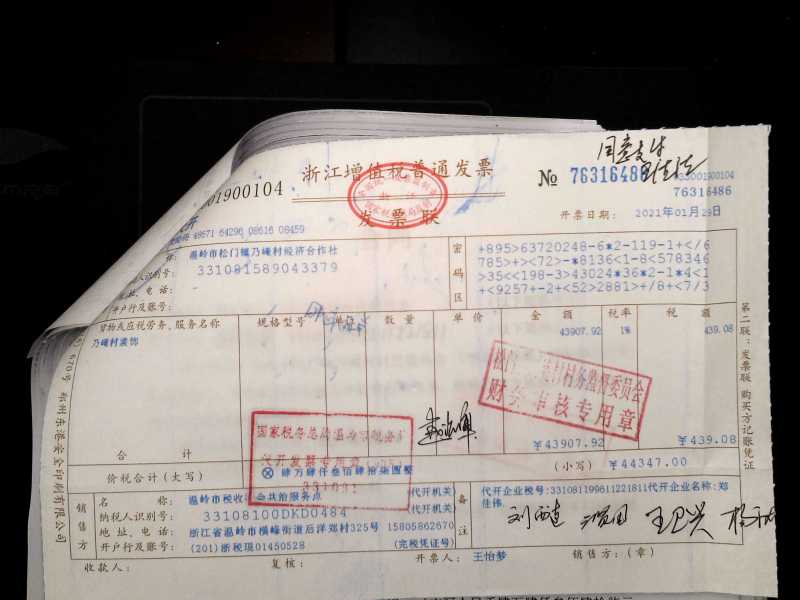 同意支付
浙江增值税普通发票
01900104
№ 76316486
3300190​0104
76316486
发票联
开票日期: 2021年01月29日
48671 64296 08616 08459
温岭市松门镇乃崦村经济合作社
人识别号: 331081589043379
址、电话:
开户行及账号:
密码区
+895>63720248-6*2-119-1+</6
785>+><72>-*8136<1-8<578346
>35<<198-3>43024*36*2-1*4<1
+<9257+-2+<52>2881>+/8+<7/3
货物或应税劳务、服务名称 规格型号 单位 数量 单价 金额 税率 税额
乃崦村装饰 43907.92 1% 439.08
村务监督委员会
财务审核专用章
国家税务总局温岭市税务局
代开发票专用章
合计 ￥43907.92 ￥439.08
价税合计(大写) ⊗ 肆万肆仟叁佰肆拾柒圆整 (小写) ￥44347.00
销售方
名称: 温岭市税收社会共治服务点 (代开机关)
纳税人识别号: 33108100DKD0484 (代开机关)
地址、电话: 浙江省温岭市横峰街道后洋郑村325号 15805862670
开户行及账号: (201)浙税现01450528 (完税凭证号)
备注
代开企业税号:331081199611221811代开企业名称:郑
佳伟.
收款人: 复核: 开票人: 王怡梦 销售方:(章)
第二联:发票联 购买方记账凭证
670号 郑州东港安全印刷有限公司